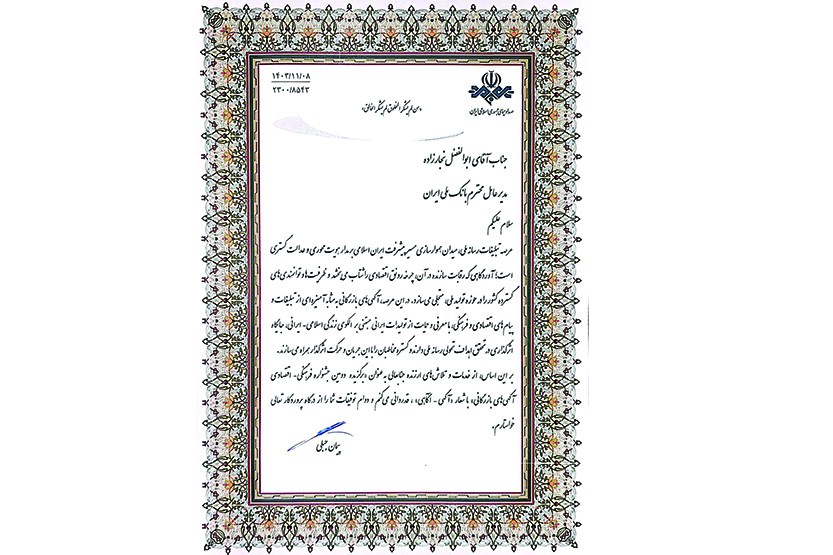 ۱۴۰۳/۱۱/۰۸
۲۳۰۰/۸۵۴۳
صداوسیمای جمهوری اسلامی ایران
«من لم یشکر المخلوق لم یشکر الخالق»
جناب آقای ابوالفضل نجارزاده
مدیرعامل محترم بانک ملی ایران
سلام علیکم
عرصه تبلیغات رسانه ملی، میدان هموارسازی مسیر پیشرفت ایران اسلامی بر مدار هویت محوری و عدالت گستری
است؛ آوردگاهی که رقابت سازنده در آن، چرخه رونق اقتصادی را شتاب می‌بخشد و ظرفیت‌ها و توانمندی‌های
گسترده کشور را در حوزه تولید ملی، متجلی می‌سازد. در این عرصه، آگهی‌های بازرگانی به مثابه آمیزه‌ای از تبلیغات و
پیام‌های اقتصادی و فرهنگی، با معرفی و حمایت از تولیدات ایرانی مبتنی بر الگوی زندگی اسلامی - ایرانی، جایگاه
اثرگذاری در تحقق اهداف تحولی رسانه ملی دارند و گستره مخاطبان را با این جریان و حرکت اثرگذار همراه می‌سازند.
بر این اساس، از خدمات و تلاش‌های ارزنده جنابعالی به عنوان «برگزیده دومین جشنواره فرهنگی - اقتصادی
آگهی‌های بازرگانی» با شعار «آگهی - آگاهی»، قدردانی می‌کنم و دوام توفیقات شما را از درگاه پروردگار تعالی
خواستارم.
پیمان جبلی